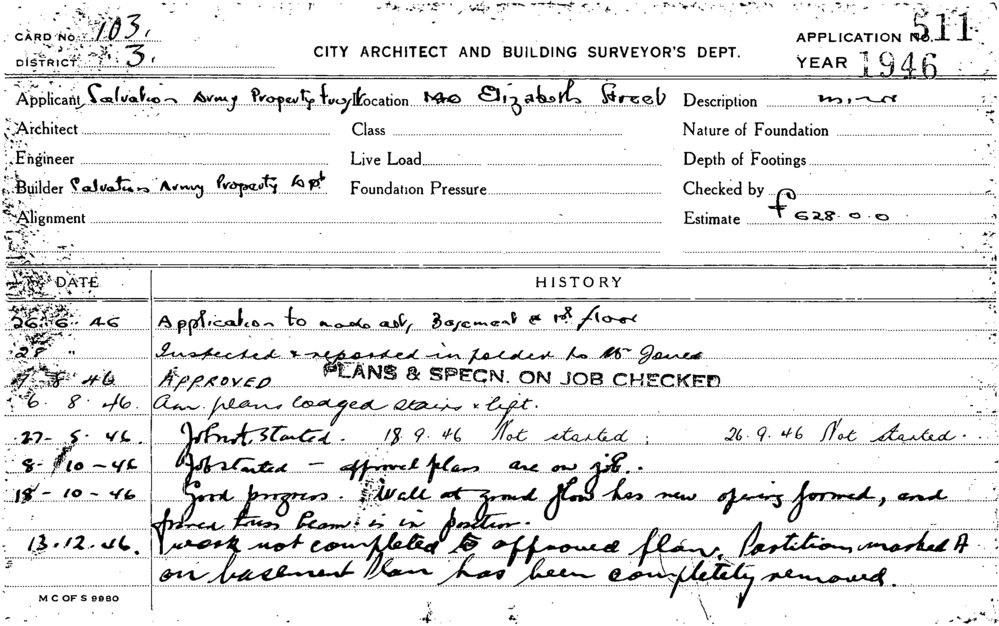 CARD No. 103.
DISTRICT 3.
CITY ARCHITECT AND BUILDING SURVEYOR'S DEPT.
APPLICATION No. 511
YEAR 1946
Applicant Salvation Army Property Location Elizabeth Street Description minor
Architect Class Nature of Foundation
Engineer Live Load Depth of Footings
Builder Salvation Army Property Dpt Foundation Pressure Checked by
Alignment Estimate £628.0.0
DATE HISTORY
26.6.46 Application to Basement & 1st floor
28 " Inspected & reported in folder to Mr Jones
8 46 APPROVED PLANS & SPECN. ON JOB CHECKED
6. 8. 46. Am. plans lodged stairs & lift.
27- 46. Job not started. 18.9.46 Not started. 26.9.46 Not started.
8- 10-46 Job started - approval plans are on job.
18-10-46 Good progress. Wall at ground floor has new opening formed, and
truss beam is in position.
13.12.46. Work not completed to approved plan. Partition marked A
on basement plan has been completely removed.
M C OF S 9980